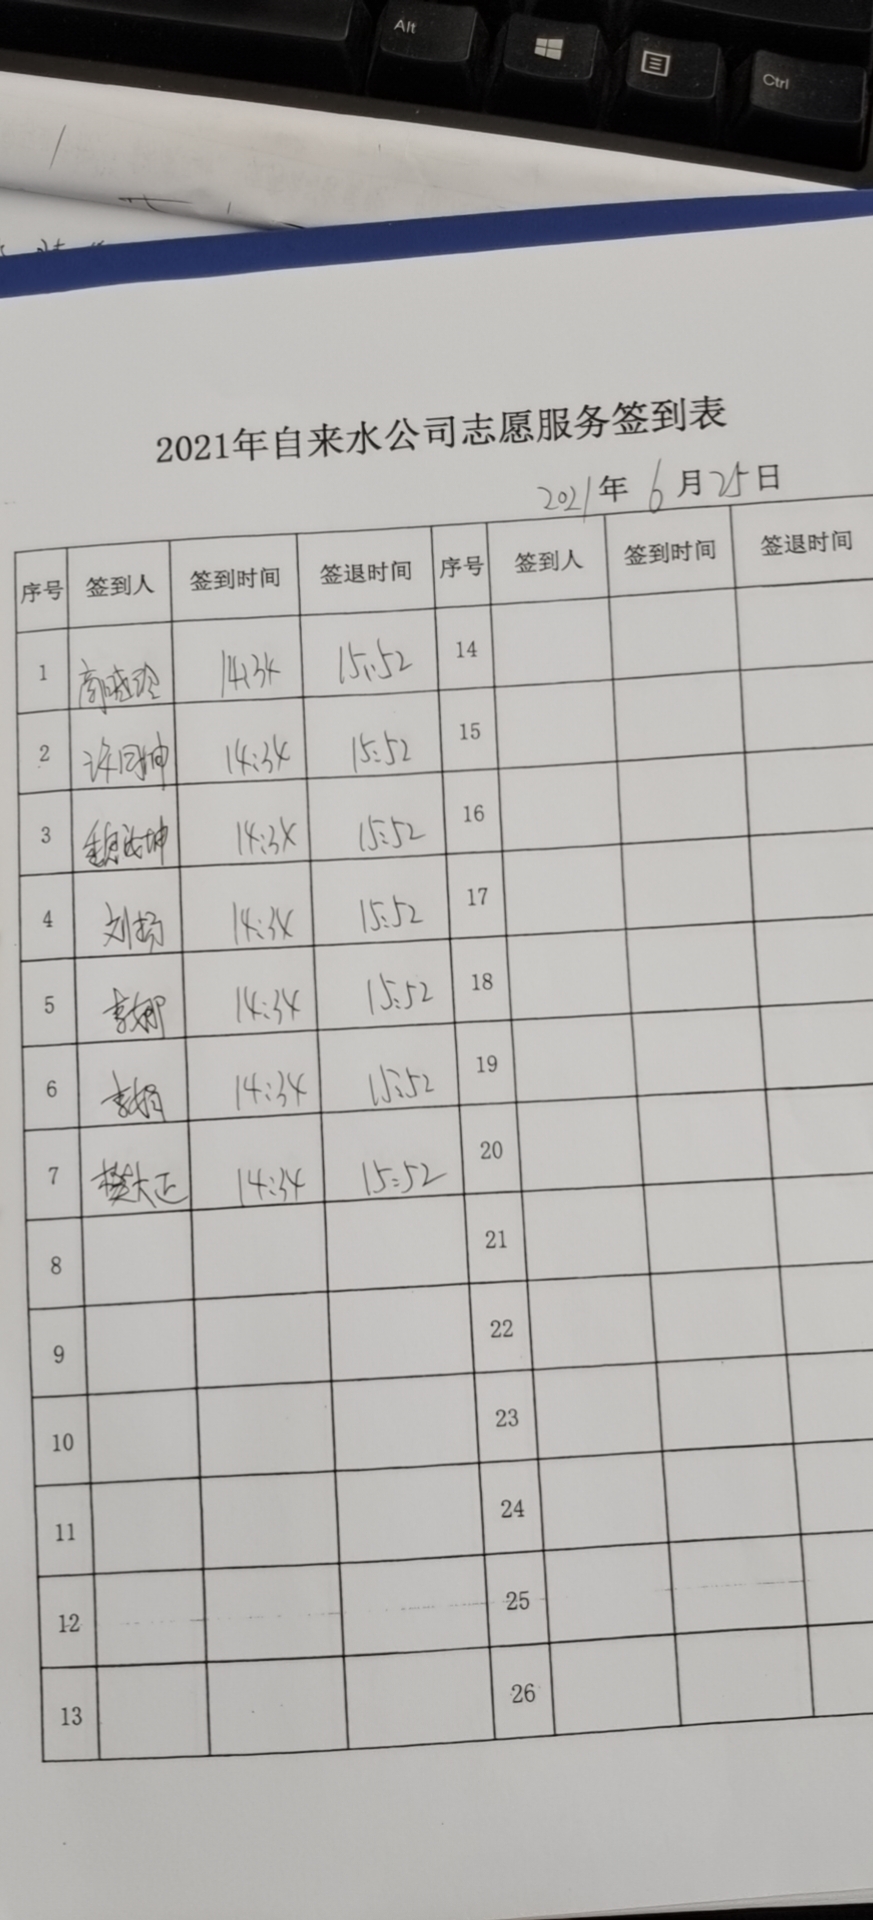 Alt
Ctrl
2021年自来水公司志愿服务签到表
2021年 6月25日
序号 签到人 签到时间 签退时间 序号 签到人 签到时间 签退时间
1 14:34 15:52 14
2 14:34 15:52 15
3 14:34 15:52 16
4 刘扬 14:34 15:52 17
5 李娜 14:34 15:52 18
6 14:34 15:52 19
7 樊大正 14:34 15:52 20
8 21
9 22
10 23
11 24
12 25
13 26